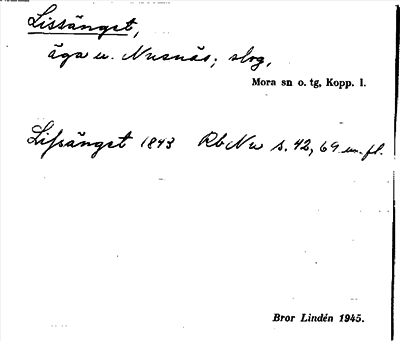 Lissängst,
äga u. Nusnäs; skog,
Mora sn o. tg, Kopp. l.
Lissängst 1843 Rb Nu s. 42, 69 m. fl.
Bror Lindén 1945.